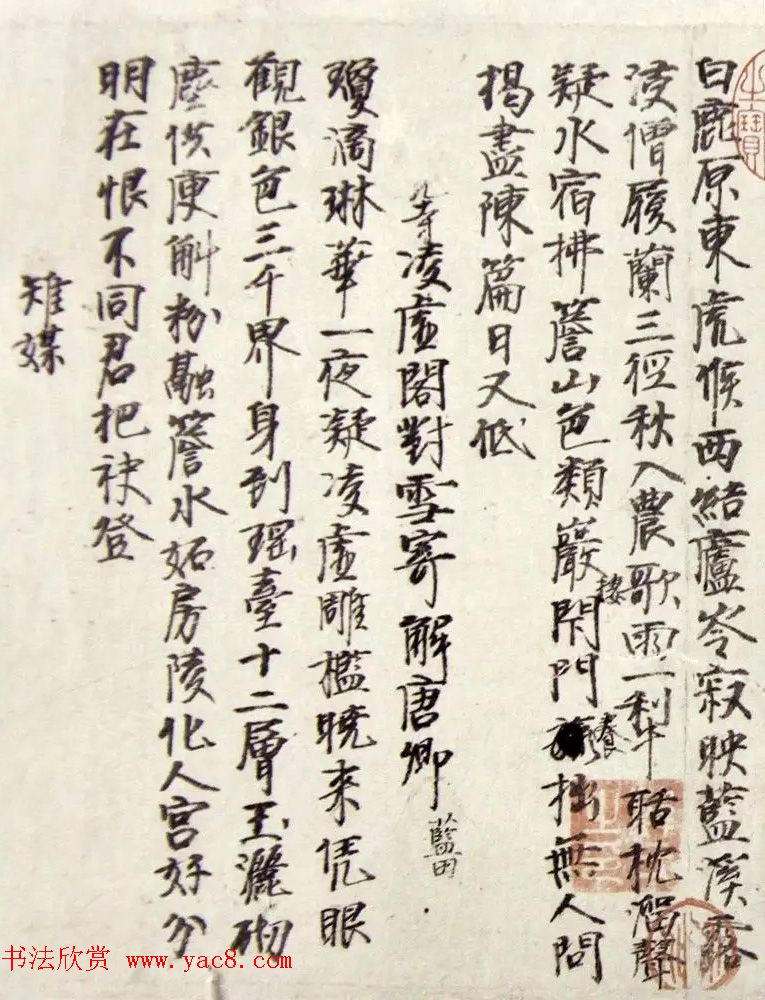 白鹿原東虎候西結廬岑寂映藍溪露
浸僧屐蘭三徑秋入農歌雨一犁聒枕溜聲
疑水宿拂簷山色類巖棲閑門養拙無人問
揭盡陳篇日又低
寺凌虛閣對雪寄解唐卿 藍田
瓊滴琳華一夜凝凌虛雕檻曉來凭眼
觀銀色三千界身到瑤臺十二層玉灑砌
塵供庾斛粉融簷水妬房陵化人宮好分
明在恨不同君把袂登
雉媒
书法欣赏 www.yac8.com